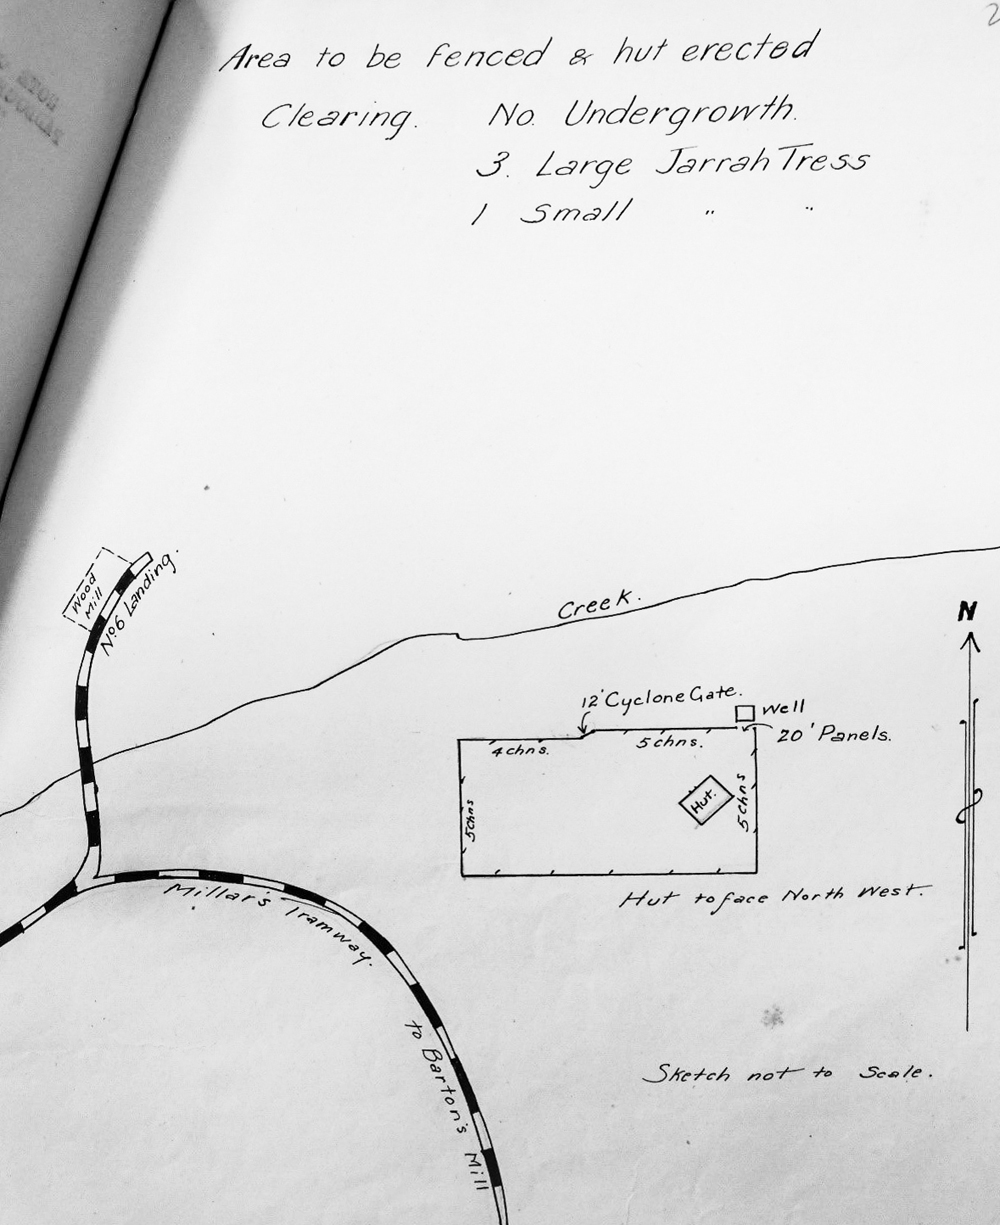 Area to be fenced & hut erected
Clearing. No. Undergrowth.
3. Large Jarrah Tress
1 Small " "
Wood
Mill
No6 Landing.
Creek.
N
12' Cyclone Gate.
Well
20' Panels.
4 chns.
5 chns.
5 chns
Hut.
5 chns
Hut to face North West.
Millar's Tramway.
to Barton's Mill
Sketch not to Scale.